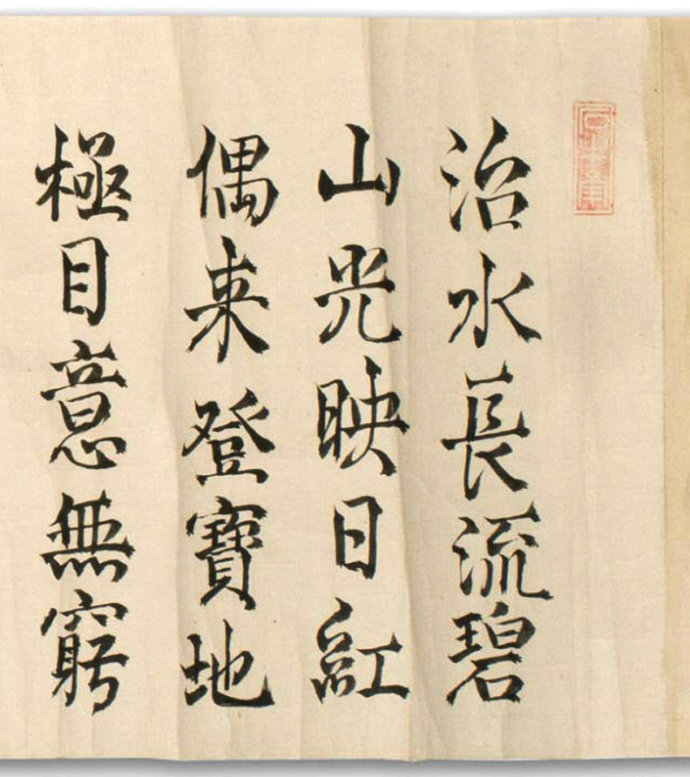 治水長流碧
山光映日紅
偶来登寶地
極目意無窮